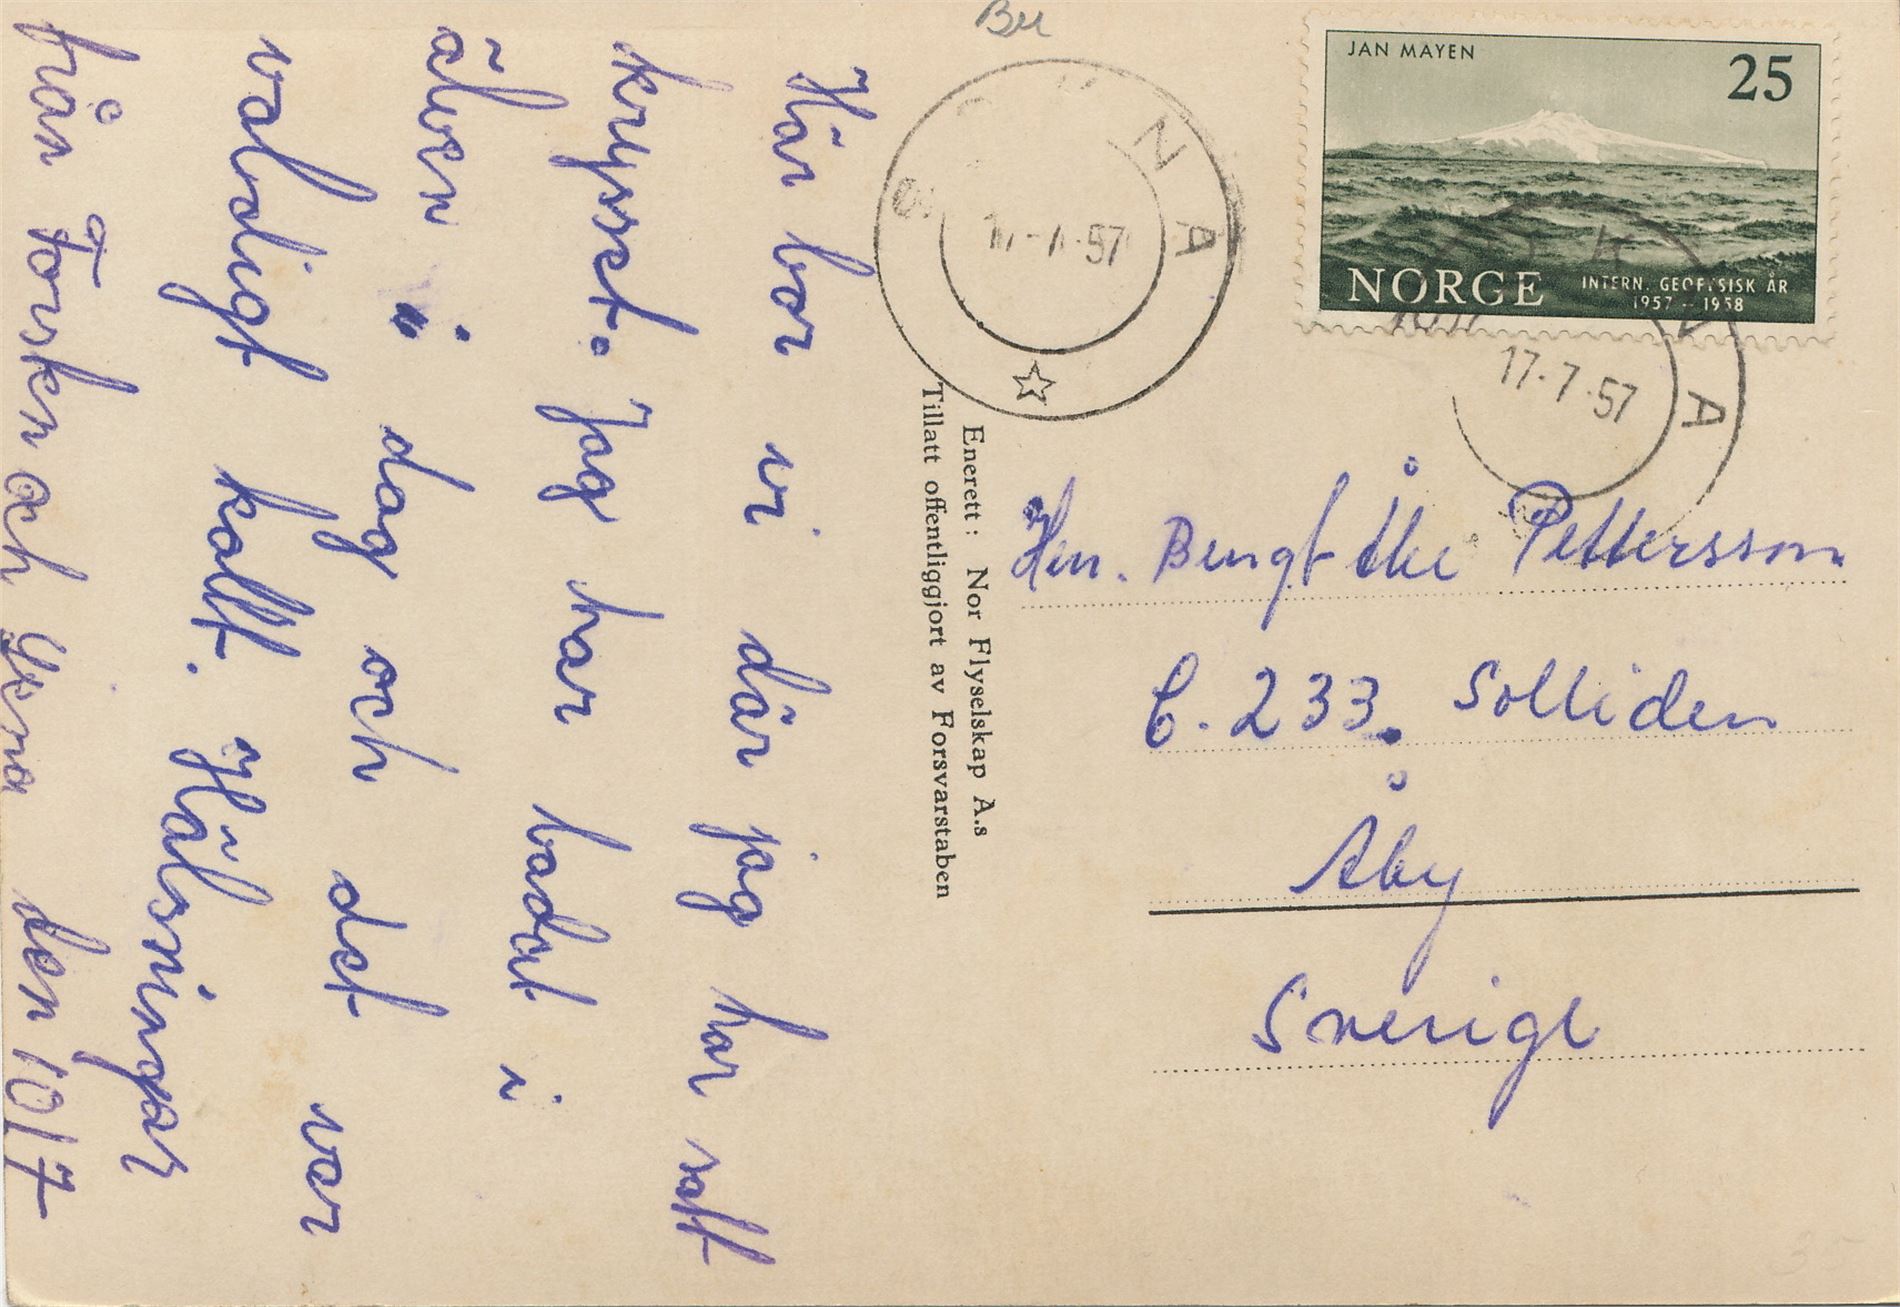 Här bor vi där jag har satt
krysset. Jag har badat i
älven i dag och det var
valdigt kallt. Hälsningar
från Torsten och Yena den 10/7
Bu
UNNA
17-7-57
JAN MAYEN
25
NORGE
INTERN. GEOFYSISK ÅR
1957 - 1958
17-7-57
A
Enerett: Nor Flyselskap A.s
Tillatt offentliggjort av Forsvarstaben
Herr. Bengt Åke Pettersson
C. 233. Solliden
Åby
Sverige
35